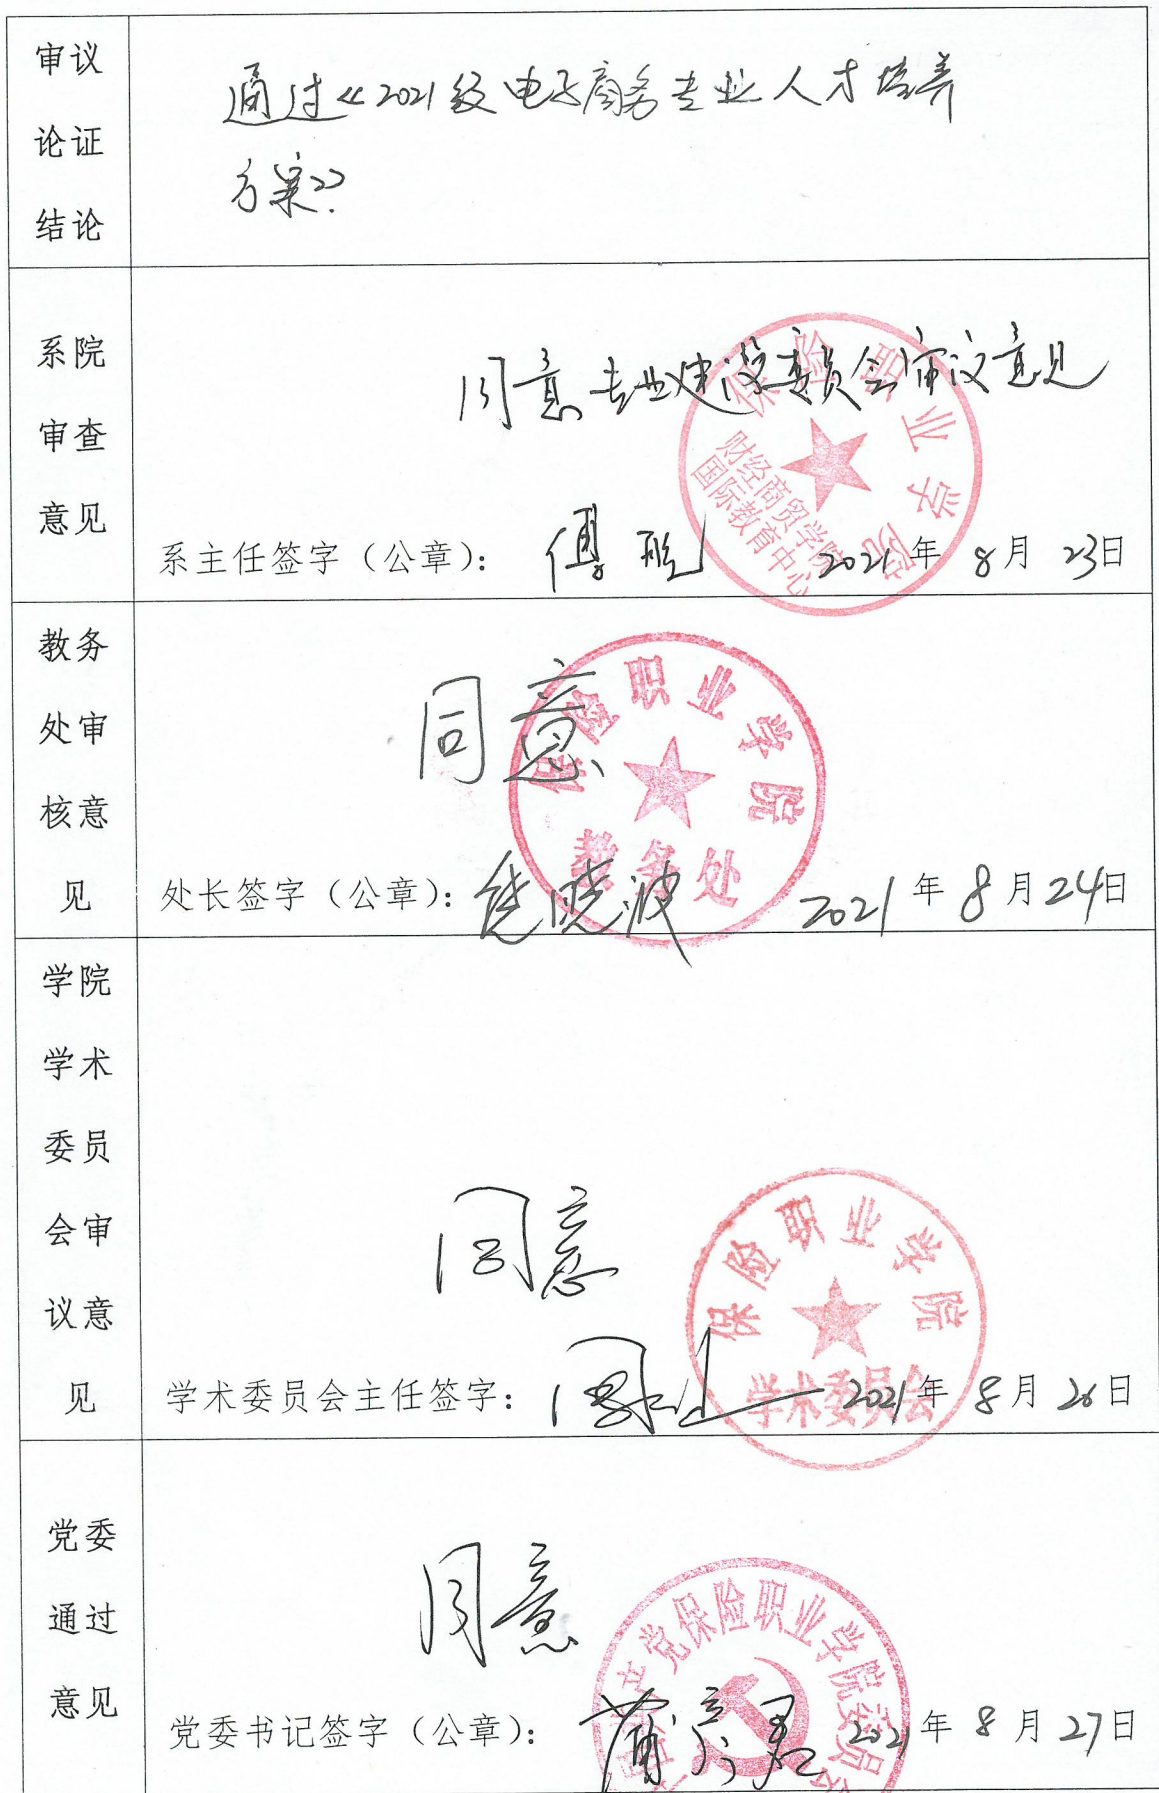 审议
论证
结论
通过《2021级电子商务专业人才培养
方案》.
系院
审查
意见
同意专业建设委员会审议意见
保险职业学院
财经商贸学院
国际教育中心
系主任签字（公章）： 傅 2021年 8月 23日
教务
处审
核意
见
同意
保险职业学院
教务处
处长签字（公章）：饶晓波 2021年8月24日
学院
学术
委员
会审
议意
见
同意
保险职业学院
学术委员会
学术委员会主任签字： 2021年 8月 26日
党委
通过
意见
同意
产党保险职业学院委员
党委书记签字（公章）： 2021年 8月 27日